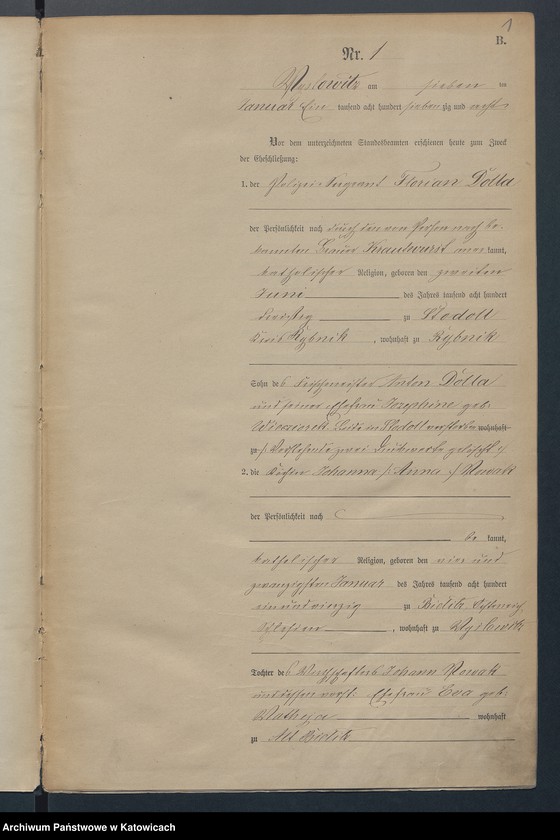 1
B.
Nr. 1
am sieben ten
Januar Ein tausend acht hundert sieben zig und acht
Vor dem unterzeichneten Standesbeamten erschienen heute zum Zweck
der Eheschließung:
1. der Polizei-Sergeant Florian Dölla
der Persönlichkeit nach durch den von Person nach be-
kannten Knaulwurst aner kannt,
katholischer Religion, geboren den zweiten
Juni des Jahres tausend acht hundert
dreißig zu Stodoll
Kreis Rybnik, wohnhaft zu Rybnik
Sohn des Anton Dölla
und seiner Ehefrau Josephine geb.
Beide in Stodoll verstorben wohnhaft
zu /: Vorstehende zwei Druckworte gelöscht :/
2. die Johanna /: Anna :/ Nowak
der Persönlichkeit nach
be kannt,
katholischer Religion, geboren den vier und
zwanzigsten Januar des Jahres tausend acht hundert
ein und vierzig zu
, wohnhaft zu
Tochter des Johann Nowak
und dessen Ehefrau Eva geb.
wohnhaft
zu Alt
Archiwum Państwowe w Katowicach